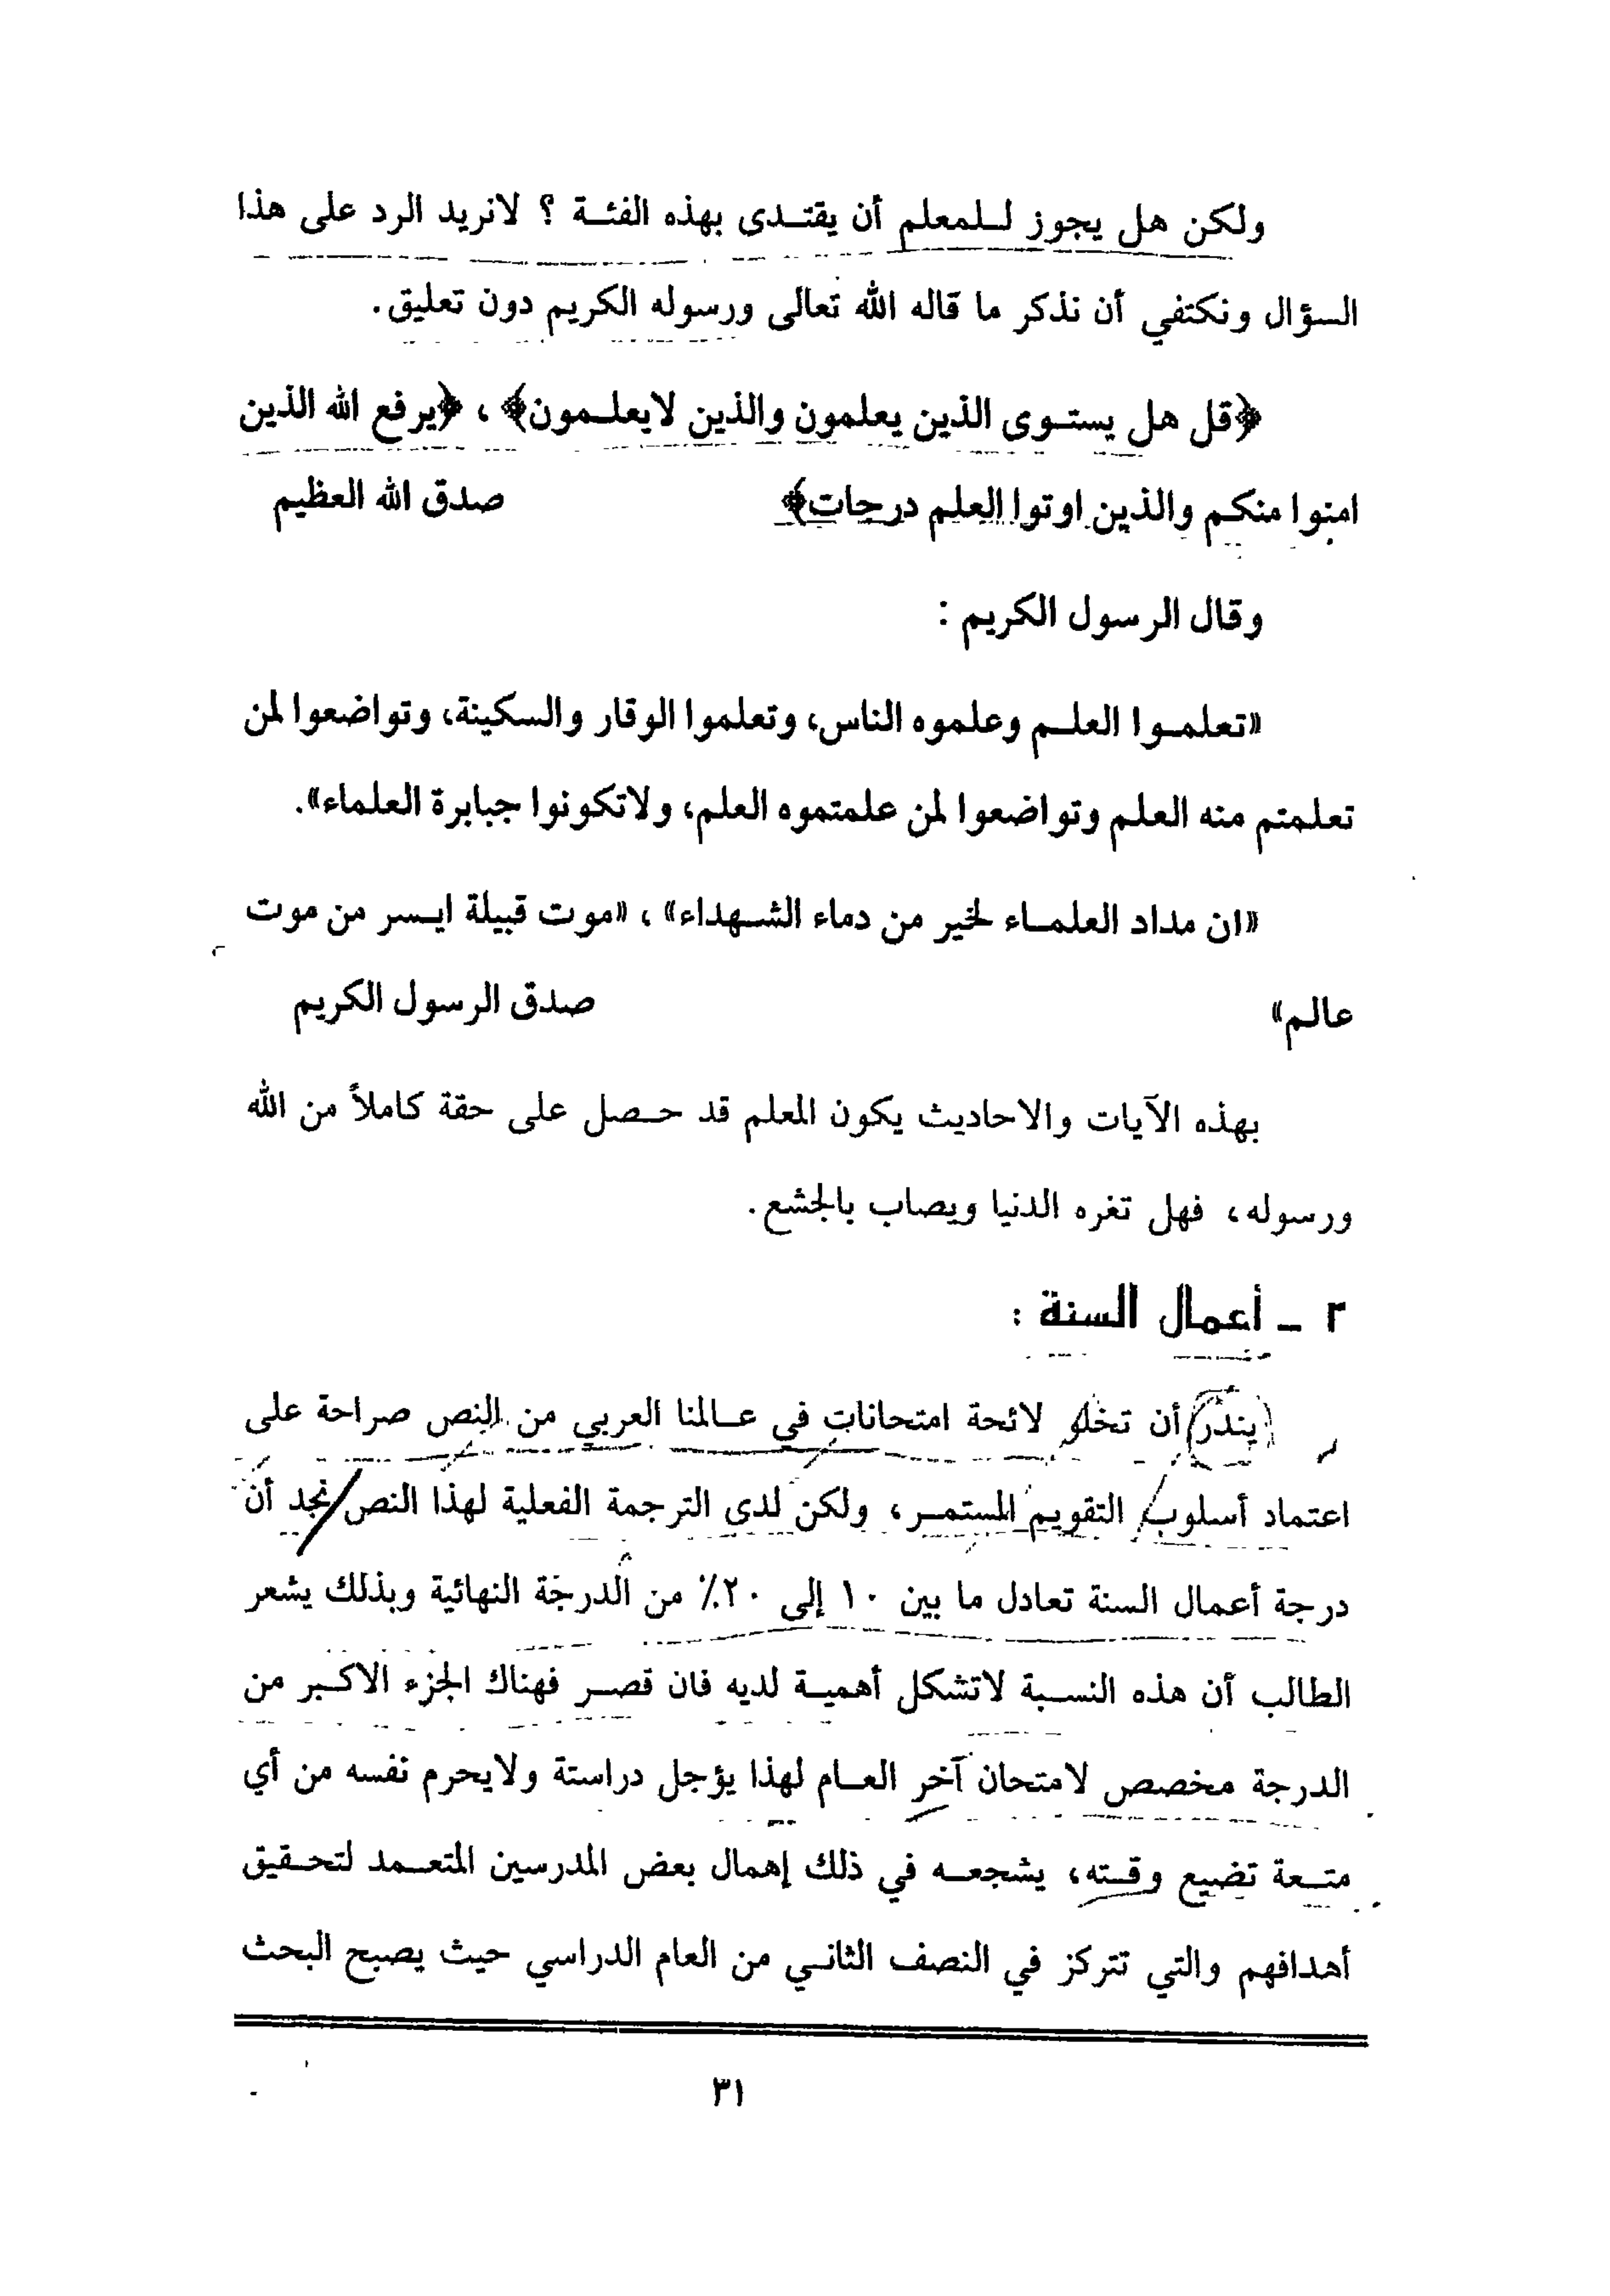 ولكن هل يجوز للمعلم أن يقتدى بهذه الفئة ؟ لانريد الرد على هذا
السؤال ونكتفي أن نذكر ما قاله الله تعالى ورسوله الكريم دون تعليق.
﴿قل هل يستوى الذين يعلمون والذين لايعلمون﴾ ، ﴿يرفع الله الذين
امنوا منكم والذين اوتوا العلم درجات﴾ صدق الله العظيم
وقال الرسول الكريم :
«تعلموا العلم وعلموه الناس، وتعلموا الوقار والسكينة، وتواضعوا لمن
تعلمتم منه العلم وتواضعوا لمن علمتموه العلم، ولاتكونوا جبابرة العلماء».
«ان مداد العلماء لخير من دماء الشهداء» ، «موت قبيلة ايسر من موت
عالم» صدق الرسول الكريم
بهذه الآيات والاحاديث يكون المعلم قد حصل على حقة كاملاً من الله
ورسوله، فهل تغره الدنيا ويصاب بالجشع.
٢ - أعمال السنة :
يندر أن تخلو لائحة امتحانات في عالمنا العربي من النص صراحة على
اعتماد أسلوب التقويم المستمر، ولكن لدى الترجمة الفعلية لهذا النص نجد أن
درجة أعمال السنة تعادل ما بين ١٠ إلى ٢٠٪ من الدرجة النهائية وبذلك يشعر
الطالب أن هذه النسبة لاتشكل أهمية لديه فان قصر فهناك الجزء الاكبر من
الدرجة مخصص لامتحان آخر العام لهذا يؤجل دراستة ولايحرم نفسه من أي
متعة تضيع وقته، يشجعه في ذلك إهمال بعض المدرسين المتعمد لتحقيق
أهدافهم والتي تتركز في النصف الثاني من العام الدراسي حيث يصبح البحث
٣١